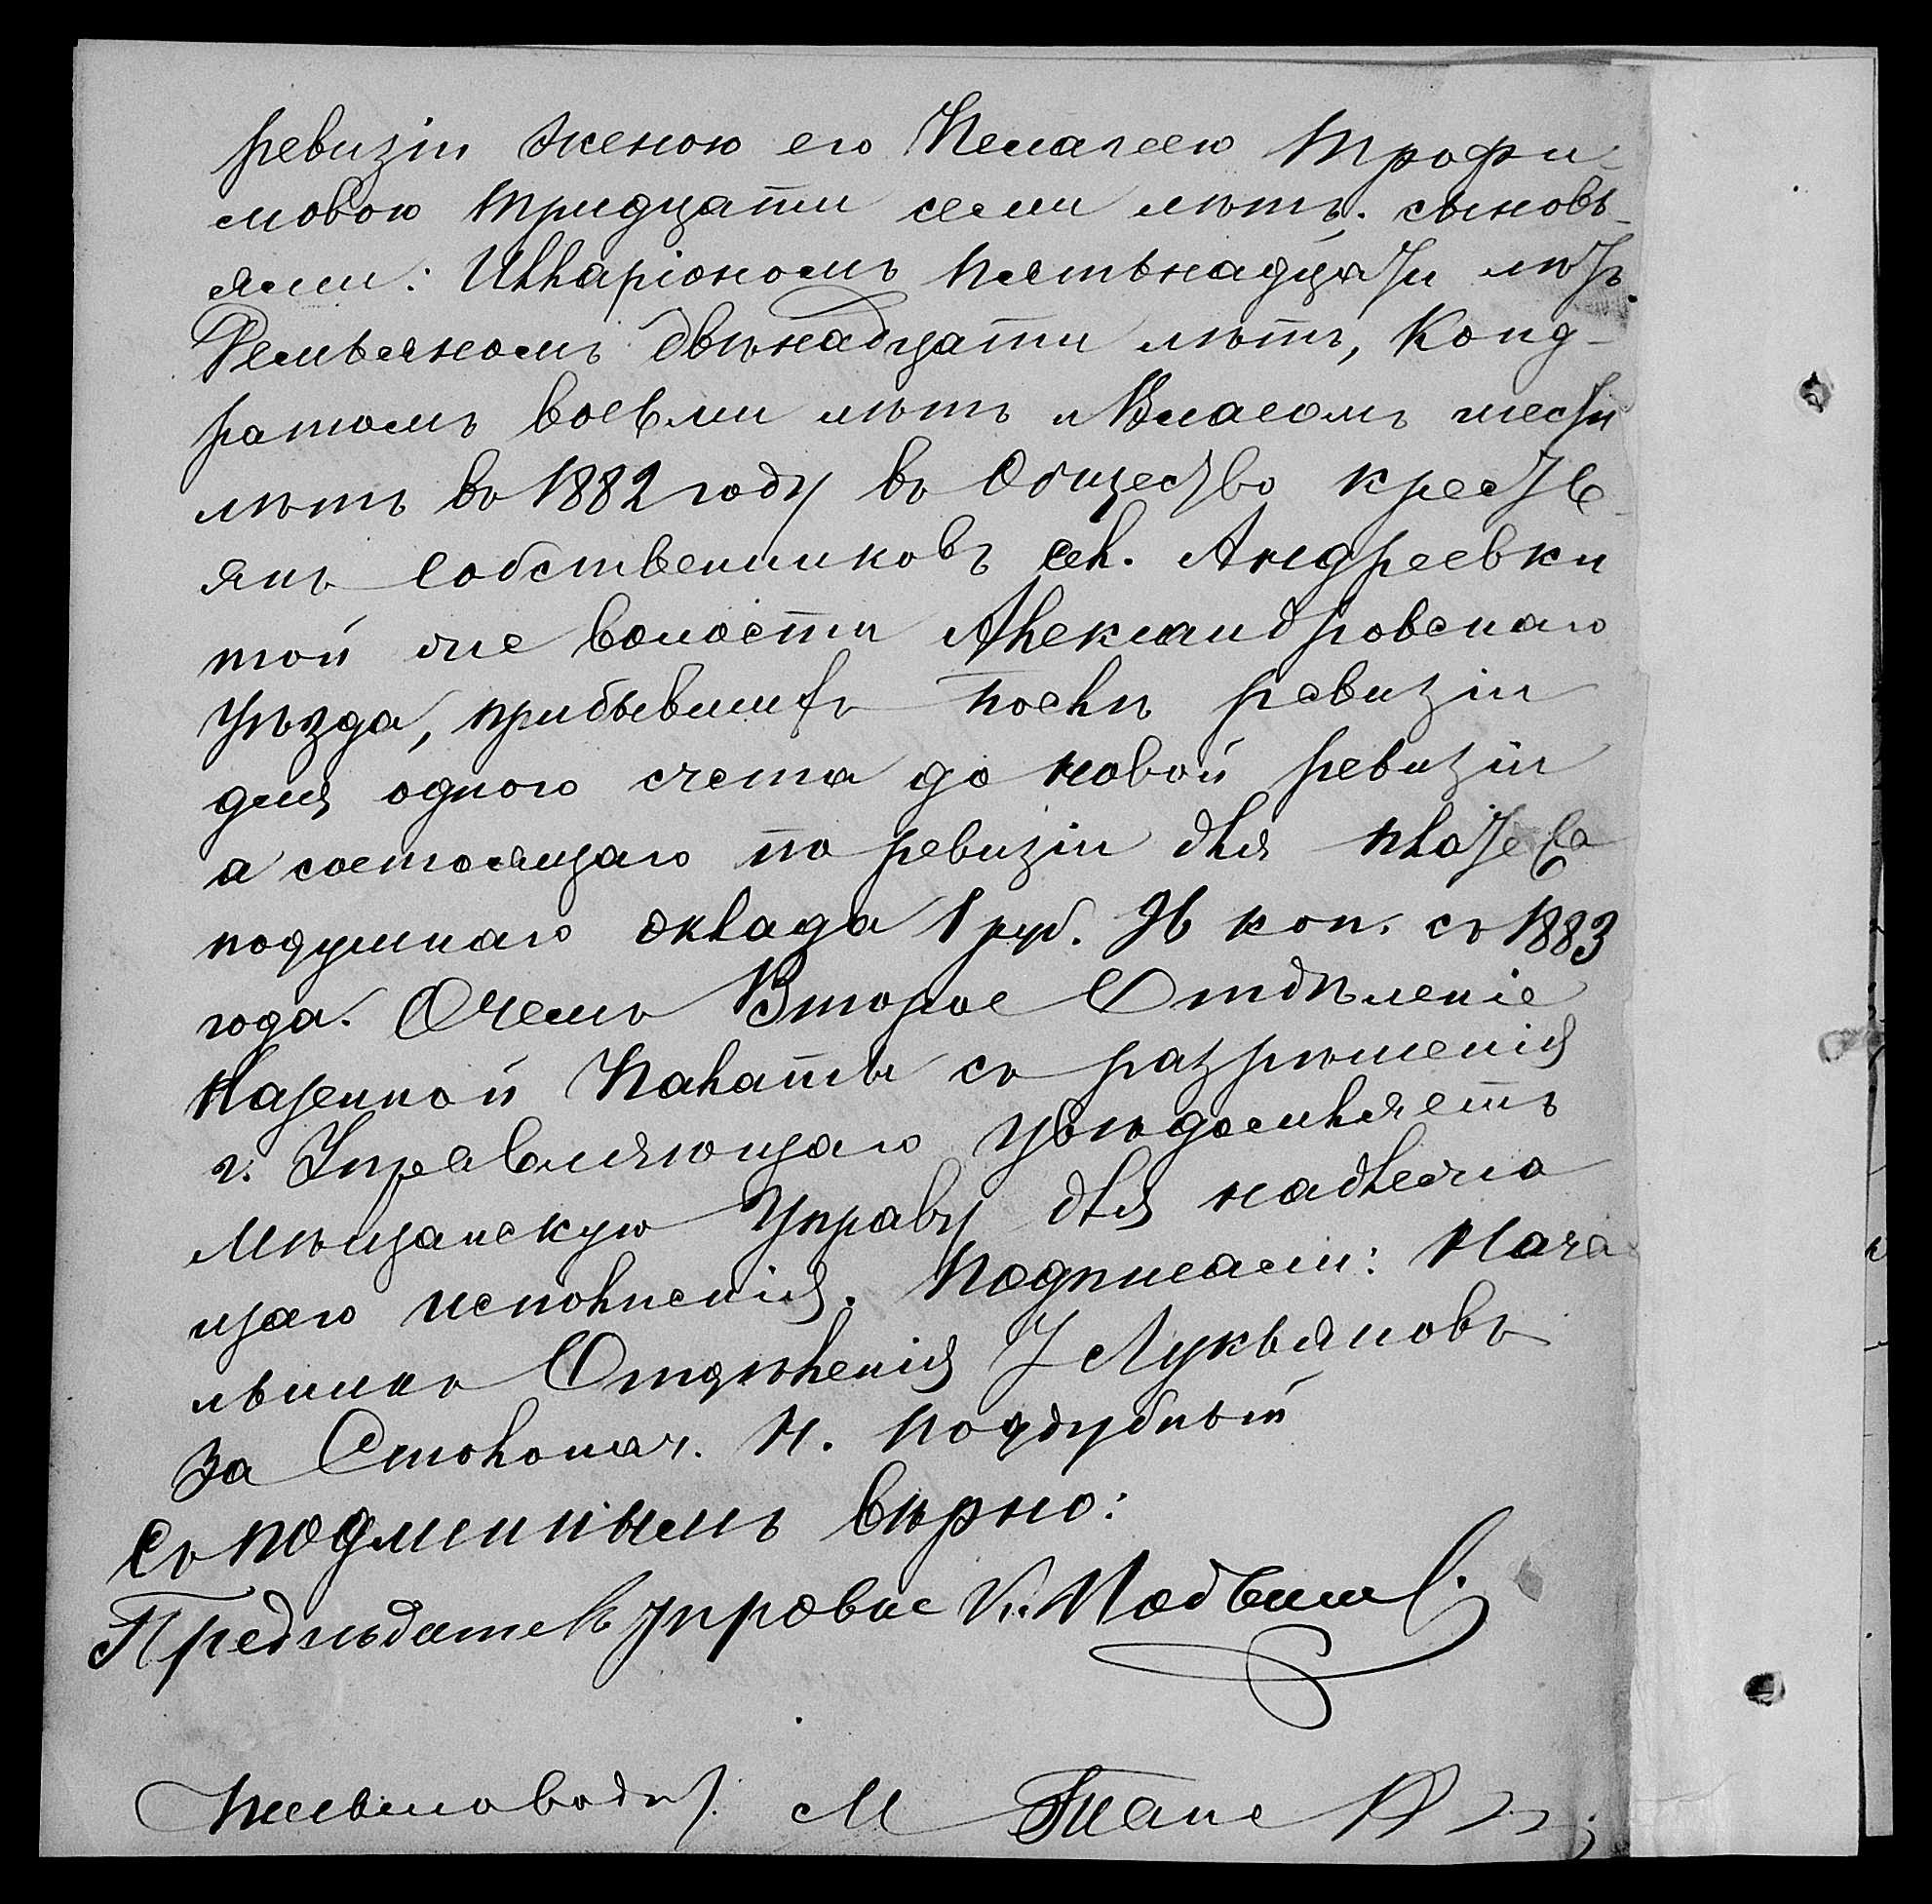 ревизіи женою его Пелагеею Трофи-
мовою тридцати семи лѣтъ. сыновь-
ями: Илларіономъ пятьнадцати лѣтъ
Демьяномъ двѣнадцати лѣтъ, Конд-
ратомъ восьми лѣтъ и Власомъ шести
лѣтъ въ 1882 году въ Общество кресть-
янъ собственниковъ сел. Андреевки
той же волости Александровскаго
уѣзда, прибывшихъ послѣ ревизіи
для одного счета до новой ревизіи
а состоящаго по ревизіи для платежа
подушнаго оклада 1 руб. 76 коп. съ 1883
года. О чемъ Второе Отдѣленіе
Казенной Палаты съ разрѣшенія
г. Управляющаго увѣдомляетъ
Мѣщанскую Управу для надлежа
щаго исполненія. Подписали: Нача
льникъ Отдѣленія Лукьяновъ
За Столонач. Н. Поддубный
Съ подлиннымъ вѣрно:
Предсѣдатель управы К.
Письмоводит. М